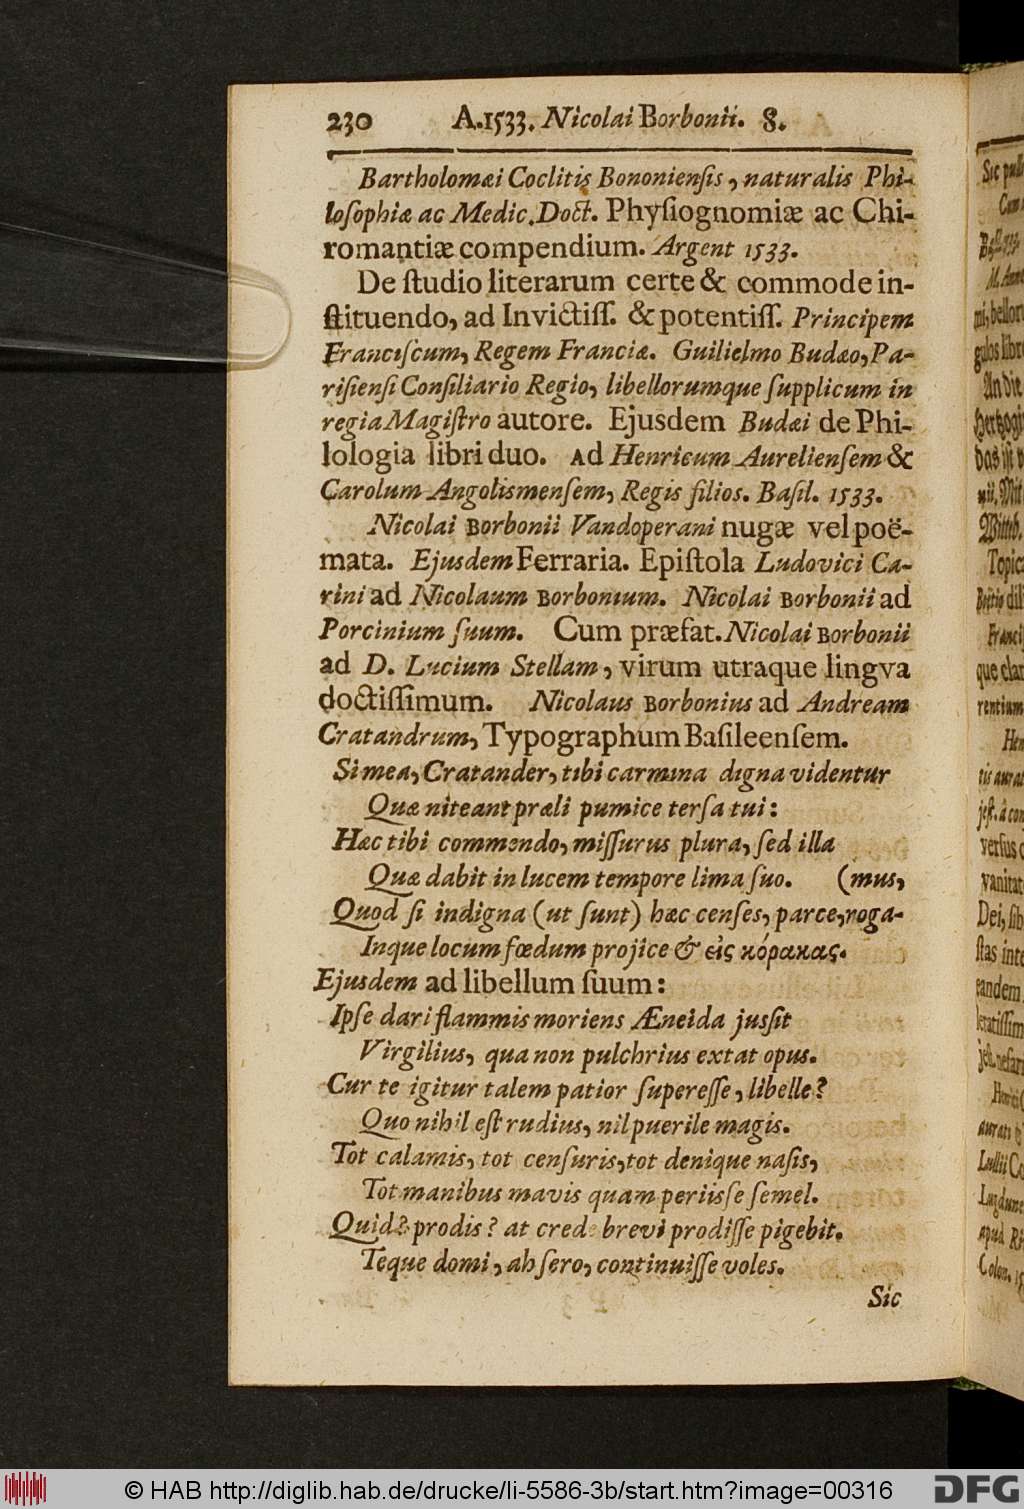 230 A.1533. Nicolai Borbonii. 8.
Bartholomæi Coclitis Bononienſis, naturalis Phi-
loſophiæ ac Medic. Doct. Phyſiognomiæ ac Chi-
romantiæ compendium. Argent 1533.
De ſtudio literarum certe & commode in-
ſtituendo, ad Invictiſſ. & potentiſſ. Principem
Franciſcum, Regem Franciæ. Guilielmo Budæo, Pa-
riſienſi Conſiliario Regio, libellorumque ſupplicum in
regia Magiſtro autore. Ejusdem Budæi de Phi-
lologia libri duo. Ad Henricum Aurelienſem &
Carolum Angolismenſem, Regis filios. Baſil. 1533.
Nicolai Borbonii Vandoperani nugæ vel poë-
mata. Ejusdem Ferraria. Epiſtola Ludovici Ca-
rini ad Nicolaum Borbonium. Nicolai Borbonii ad
Porcinium ſuum. Cum præfat. Nicolai Borbonii
ad D. Lucium Stellam, virum utraque lingva
doctiſſimum. Nicolaus Borbonius ad Andream
Cratandrum, Typographum Baſileenſem.
Si mea, Cratander, tibi carmina digna videntur
Quæ niteant præli pumice terſa tui:
Hæc tibi commendo, miſſurus plura, ſed illa
Quæ dabit in lucem tempore lima ſuo. (mus,
Quod ſi indigna (ut ſunt) hæc cenſes, parce, roga-
Inque locum fœdum projice & εἰς κόρακας.
Ejusdem ad libellum ſuum:
Ipſe dari flammis moriens Æneida jusſit
Virgilius, qua non pulchrius extat opus.
Cur te igitur talem patior ſupereſſe, libelle?
Quo nihil eſt rudius, nil puerile magis.
Tot calamis, tot cenſuris, tot denique naſis,
Tot manibus mavis quam periisſe ſemel.
Quid? prodis? at crede brevi prodiſſe pigebit.
Teque domi, ah ſero, continuiſſe voles.
Sic
© HAB http://diglib.hab.de/drucke/li-5586-3b/start.htm?image=00316
DFG